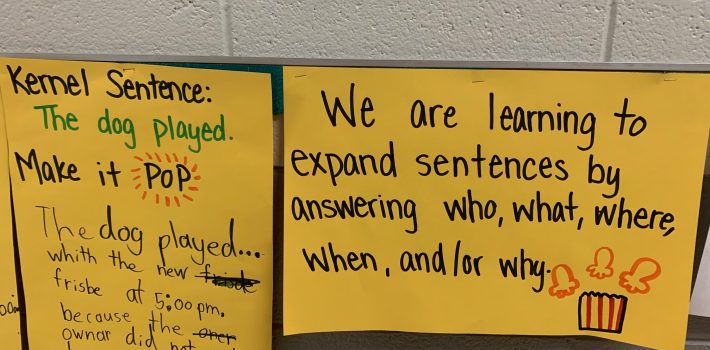 Kernel Sentence:
The dog played.
Make it POP
The dog played...
whith the new
frisbe at 5:00 pm.
because the
ownar did not
We are learning to
expand sentences by
answering who, what, where,
when, and/or why.